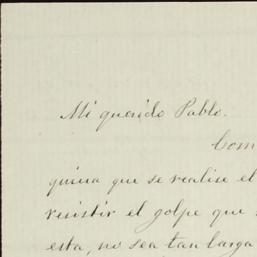 Mi querido Pablo.
Com
quiera que se realise el
resistir el golpe que
esta, no sea tan larga